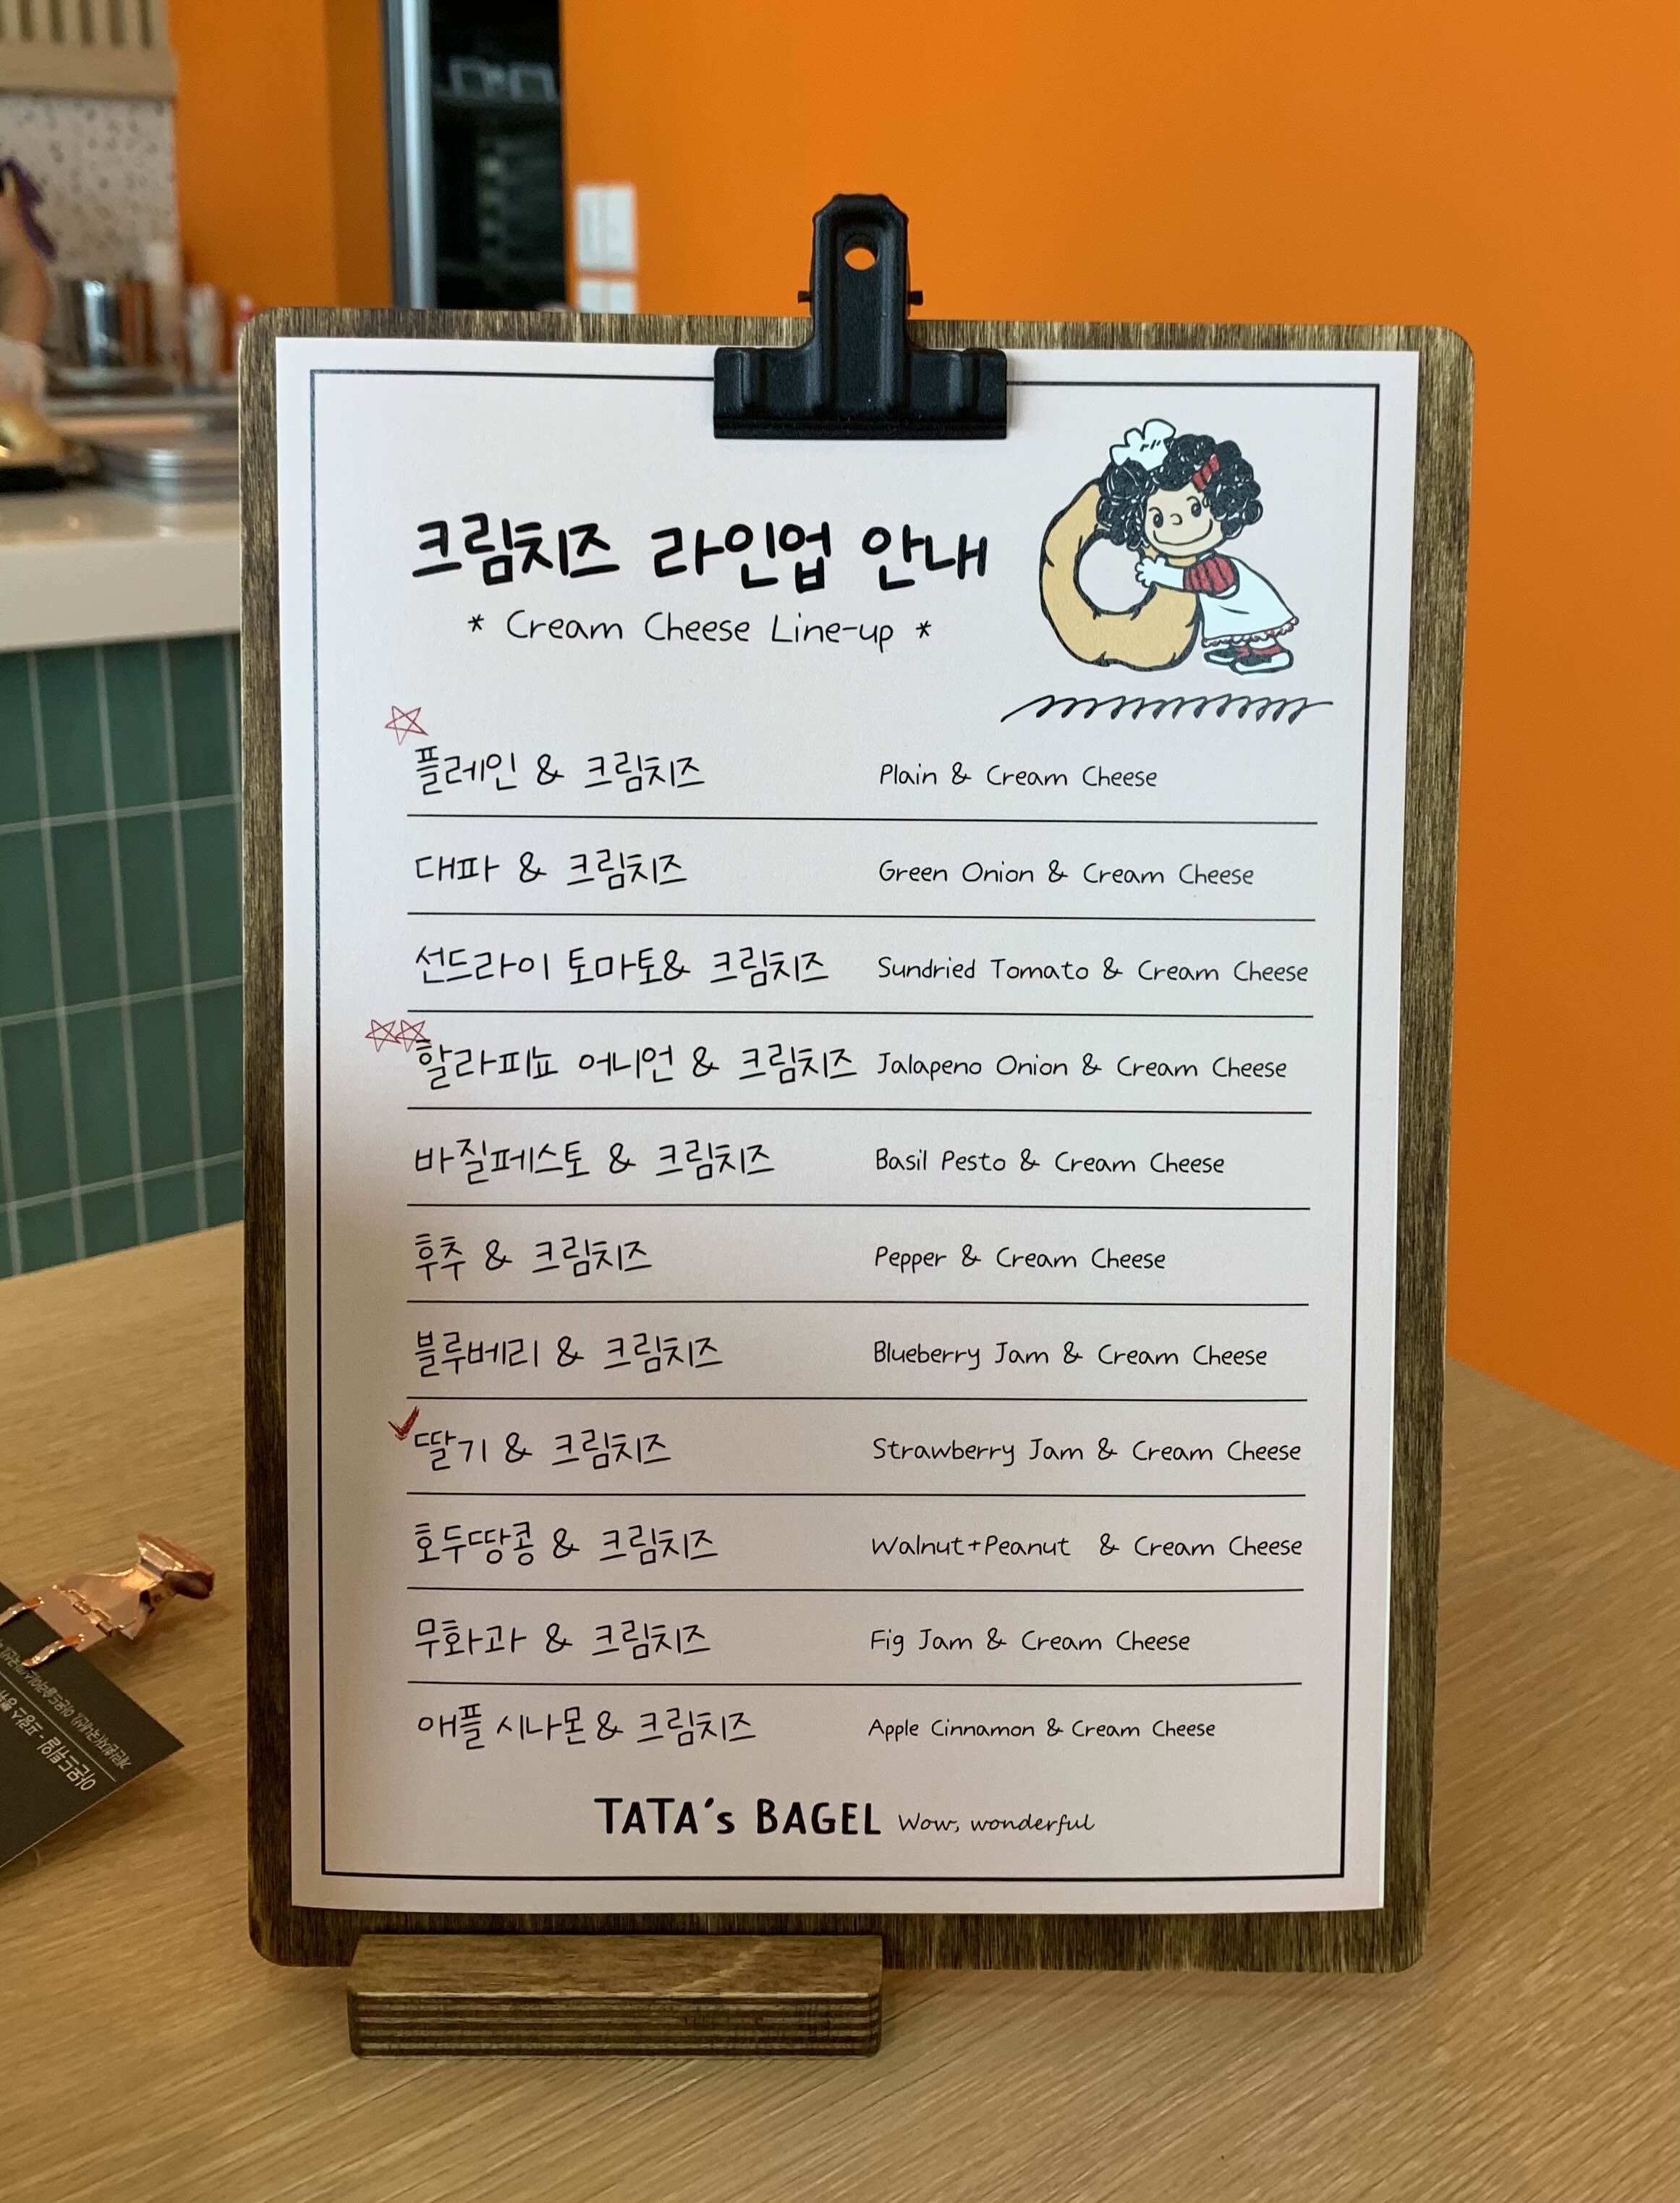 크림치즈 라인업 안내
* Cream Cheese Line-up *
플레인 & 크림치즈 Plain & Cream Cheese
대파 & 크림치즈 Green Onion & Cream Cheese
선드라이 토마토& 크림치즈 Sundried Tomato & Cream Cheese
할라피뇨 어니언 & 크림치즈 Jalapeno Onion & Cream Cheese
바질페스토 & 크림치즈 Basil Pesto & Cream Cheese
후추 & 크림치즈 Pepper & Cream Cheese
블루베리 & 크림치즈 Blueberry Jam & Cream Cheese
딸기 & 크림치즈 Strawberry Jam & Cream Cheese
호두땅콩 & 크림치즈 Walnut+Peanut & Cream Cheese
무화과 & 크림치즈 Fig Jam & Cream Cheese
애플 시나몬 & 크림치즈 Apple Cinnamon & Cream Cheese
TATA's BAGEL Wow, wonderful